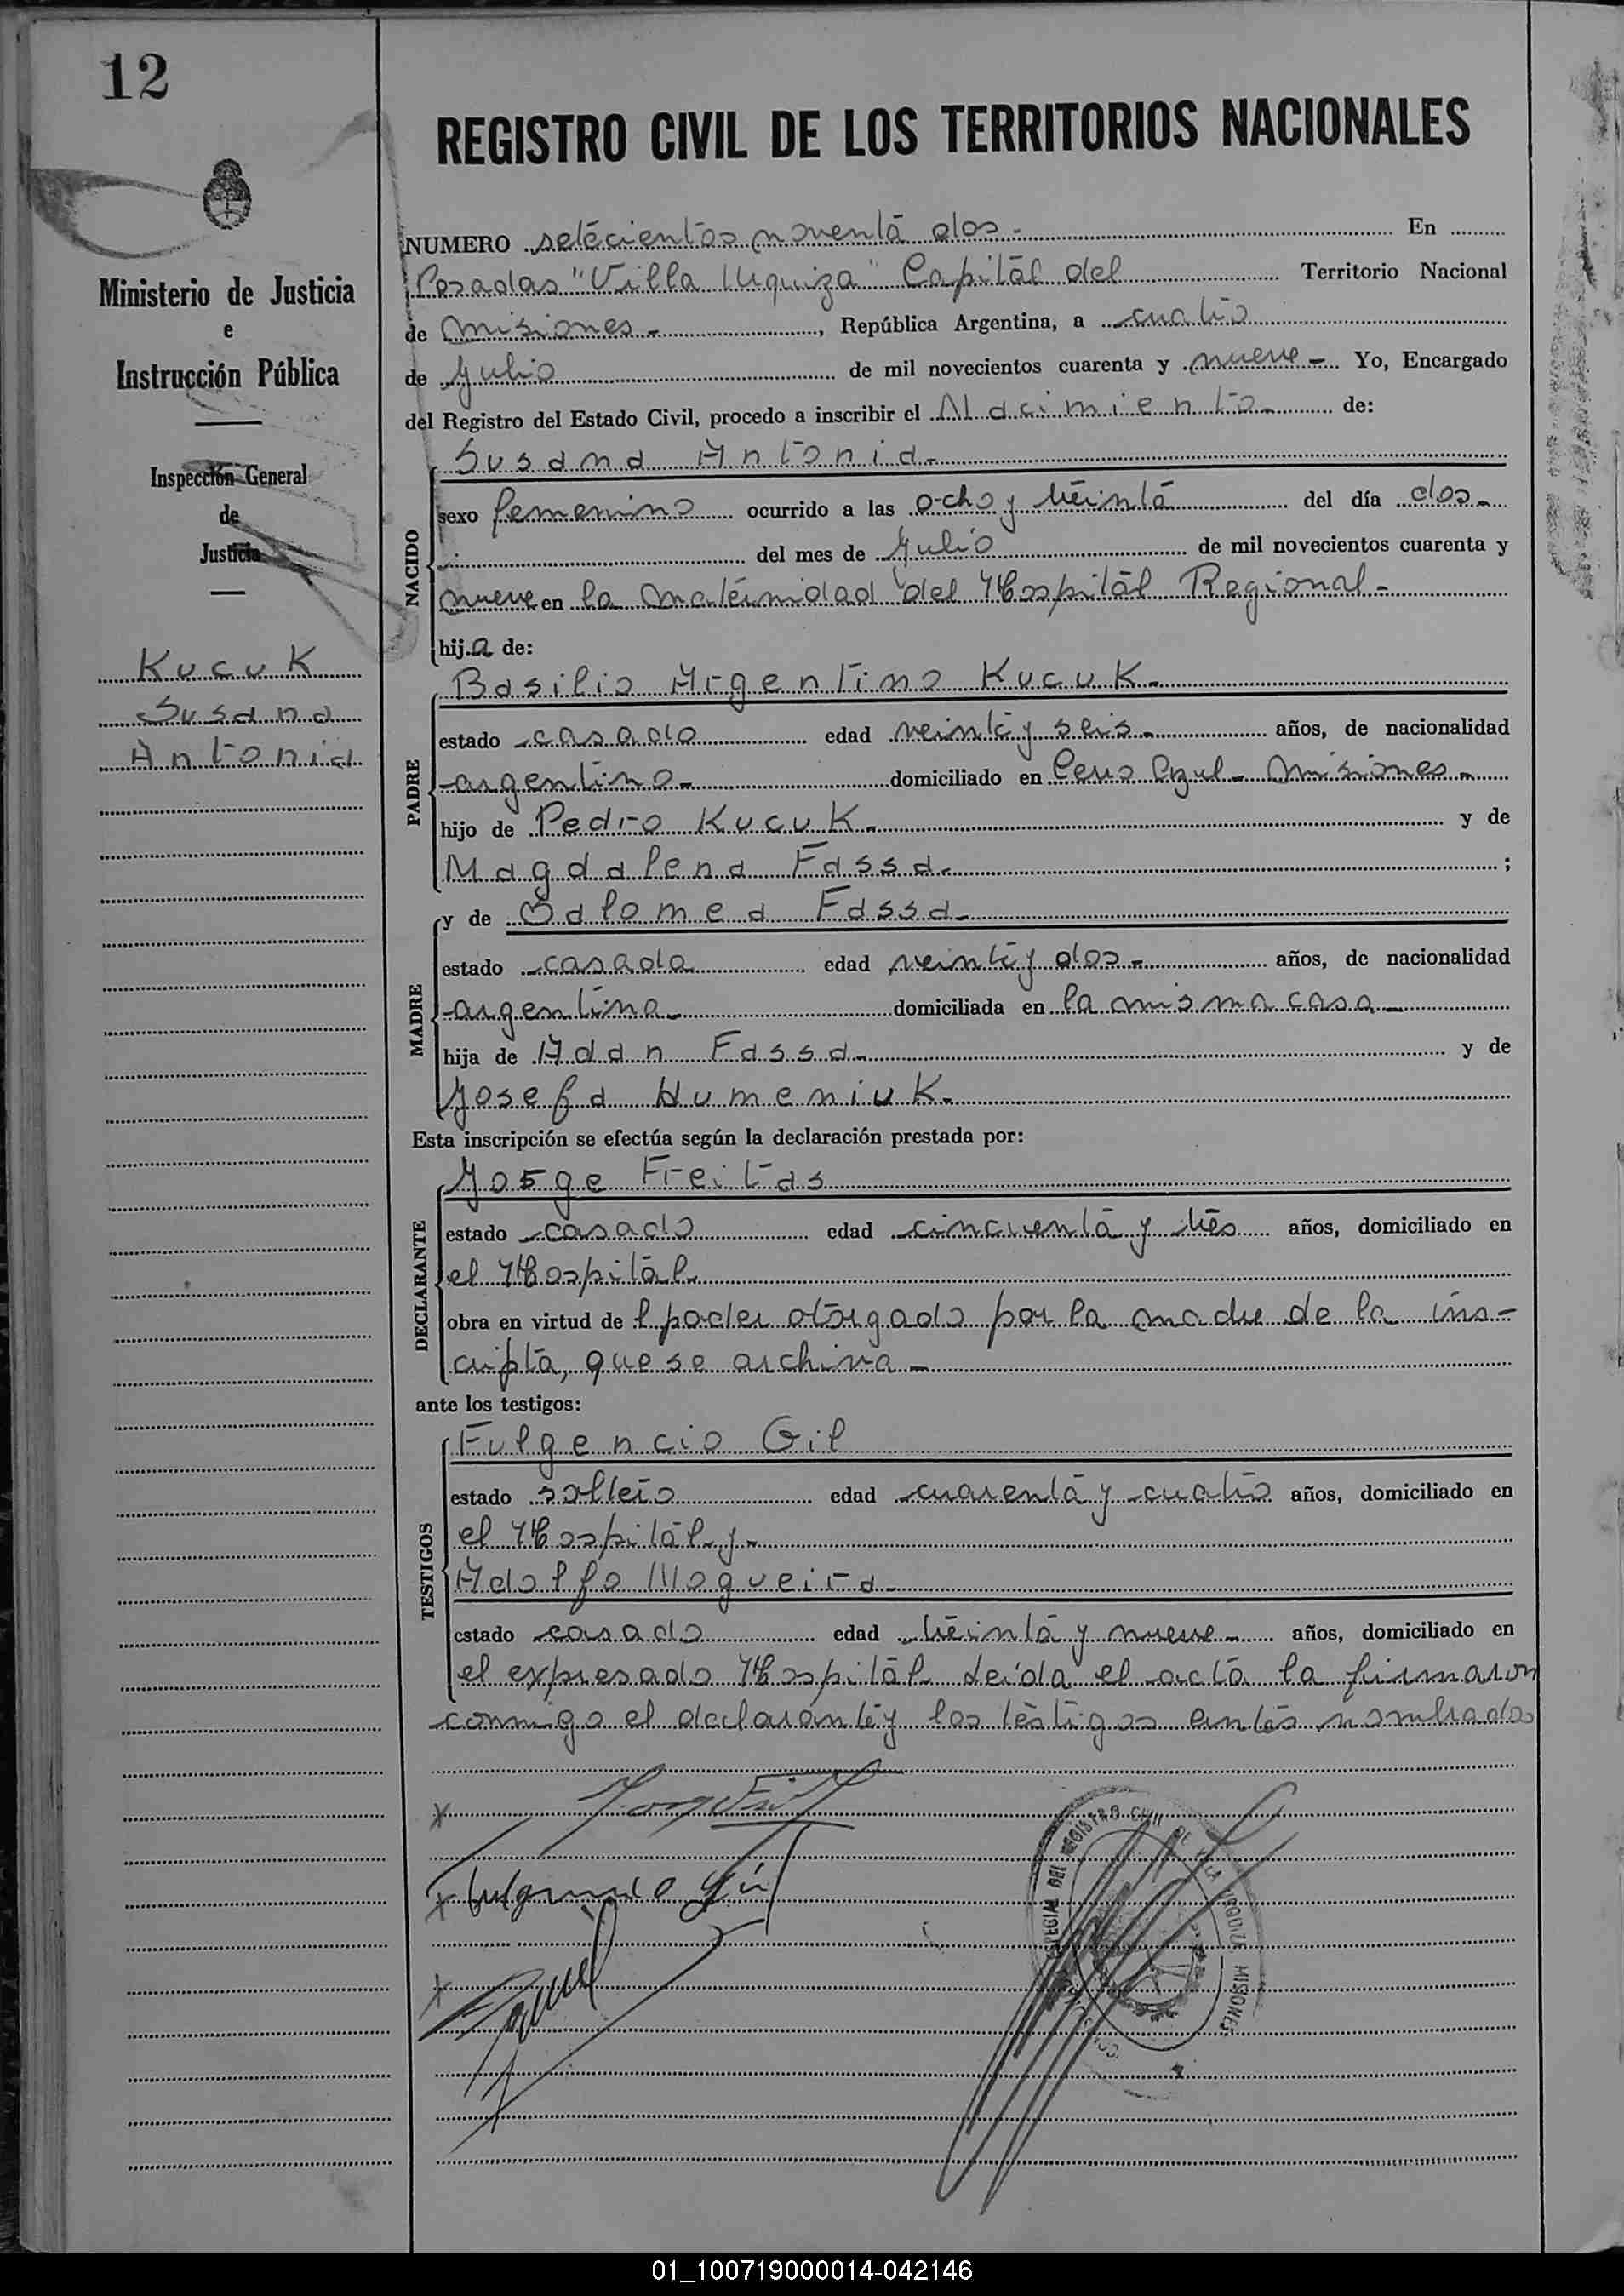 12
Ministerio de Justicia
e
Instrucción Pública
Inspección General
de
Justicia
Kucuk
Susana
Antonia
REGISTRO CIVIL DE LOS TERRITORIOS NACIONALES
NUMERO setecientos noventa dos.- En
Posadas "Villa Urquiza" Capital del Territorio Nacional
de Misiones.-, República Argentina, a cuatro
de Julio de mil novecientos cuarenta y nueve- Yo, Encargado
del Registro del Estado Civil, procedo a inscribir el Nacimiento.- de:
Susana Antonia.-
NACIDO
sexo femenino ocurrido a las ocho y treinta del día dos.-
del mes de Julio de mil novecientos cuarenta y
nueve en la Maternidad del Hospital Regional.-
hija de:
PADRE
Basilio Argentino Kucuk.-
estado casado edad veinte y seis.- años, de nacionalidad
argentino.- domiciliado en Cerro Azul- Misiones.-
hijo de Pedro Kucuk.- y de
Magdalena Fassa.- ;
MADRE
y de Salomea Fassa.-
estado casada edad veinte y dos.- años, de nacionalidad
argentina.- domiciliada en la misma casa.-
hija de Adan Fassa.- y de
Josefa Humeniuk.-
Esta inscripción se efectúa según la declaración prestada por:
DECLARANTE
Jorge Freitas
estado casado edad cincuenta y tres años, domiciliado en
el Hospital.-
obra en virtud del poder otorgado por la madre de la ins-
cripta, que se archiva.-
ante los testigos:
TESTIGOS
Fulgencio Gil
estado soltero edad cuarenta y cuatro años, domiciliado en
el Hospital y.-
Adolfo Nogueira.-
estado casado edad treinta y nueve.- años, domiciliado en
el expresado Hospital. Leída el acta la firmaron
conmigo el declarante y los testigos antes nombrados
Fulgencio Gil
REGISTRO CIVIL DE VILLA URQUIZA MISIONES
01_100719000014-042146